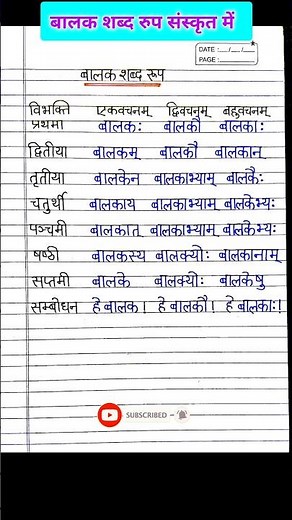 बालक शब्द रुप संस्कृत में
DATE : __/__/__
PAGE :
बालक शब्द रूप
विभक्ति एकवचनम् द्विवचनम् बहुवचनम्
प्रथमा बालकः बालकौ बालकाः
द्वितीया बालकम् बालकौ बालकान्
तृतीया बालकेन बालकाभ्याम् बालकैः
चतुर्थी बालकाय बालकाभ्याम् बालकेभ्यः
पञ्चमी बालकात् बालकाभ्याम् बालकेभ्यः
षष्ठी बालकस्य बालक्योः बालकानाम्
सप्तमी बालके बालक्योः बालकेषु
सम्बोधन हे बालक! हे बालकौ! हे बालकाः!
SUBSCRIBED